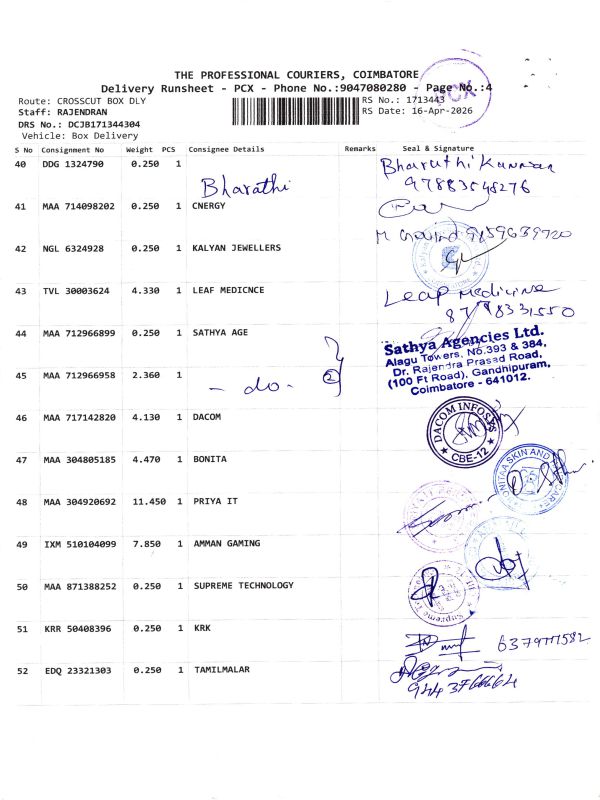 THE PROFESSIONAL COURIERS, COIMBATORE
Delivery Runsheet - PCX - Phone No.:9047080280 - Page No.:4
PCX
Route: CROSSCUT BOX DLY
RS No.: 1713443
Staff: RAJENDRAN
RS Date: 16-Apr-2026
DRS No.: DCJB171344304
Vehicle: Box Delivery
S No Consignment No Weight PCS Consignee Details Remarks Seal & Signature
40 DDG 1324790 0.250 1 Bharathi
41 MAA 714098202 0.250 1 CNERGY
42 NGL 6324928 0.250 1 KALYAN JEWELLERS
43 TVL 30003624 4.330 1 LEAF MEDICNCE
Leap medicine
44 MAA 712966899 0.250 1 SATHYA AGE
Sathya Agencies Ltd.
Alagu Towers, No.393 & 384,
Dr. Rajendra Prasad Road,
(100 Ft Road), Gandhipuram,
Coimbatore - 641012.
45 MAA 712966958 2.360 1 - do - 2
46 MAA 717142820 4.130 1 DACOM
DACOM INFOSYS
CBE-12
47 MAA 304805185 4.470 1 BONITA
SKIN AND
48 MAA 304920692 11.450 1 PRIYA IT
49 IXM 510104099 7.850 1 AMMAN GAMING
50 MAA 871388252 0.250 1 SUPREME TECHNOLOGY
51 KRR 50408396 0.250 1 KRK
52 EDQ 23321303 0.250 1 TAMILMALAR